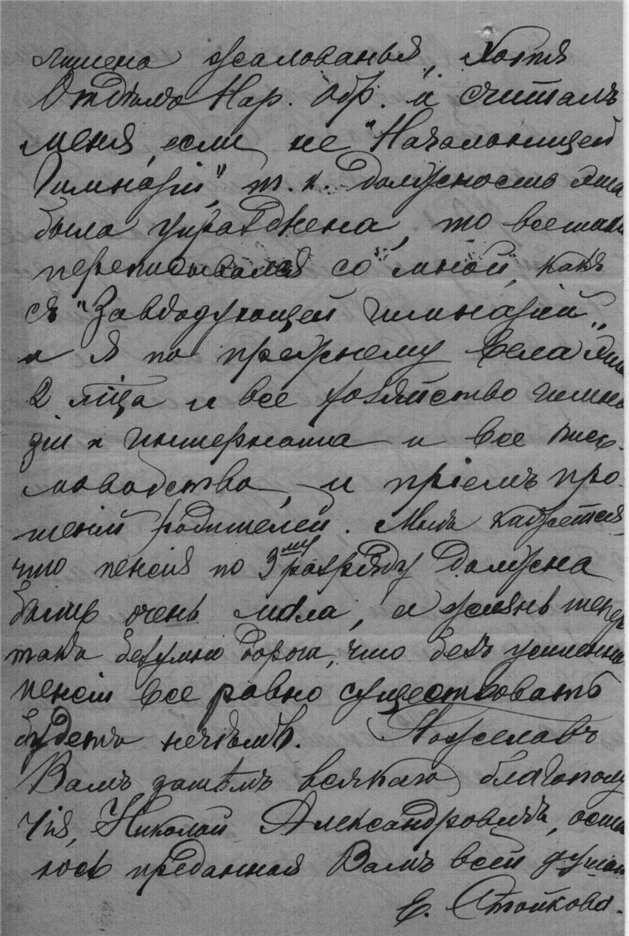 лишена жалованья, хотя
Отдѣлъ Нар. Обр. и считалъ
меня если не "Начальницей
Гимназіи", т. к. должность эта
была упразднена, то всетаки
переписывался со мной, какъ
съ "Завѣдующей гимназіей",
и я по прежнему вела эти
2 года и все хозяйство гимна
зіи и интерната и все пись-
моводство, и пріемъ про-
шеній родителей. Мнѣ кажется,
что пенсія по 3му разряду должна
быть очень мала, а жизнь тепер
такъ безумно дорога, что безъ усиленн
пенсіи все равно существовать
будетъ нечѣмъ. Пожелавъ
Вамъ затѣмъ всякаго благополу
чія, Николай Александровичъ, оста
юсь преданная Вамъ всей душой
Е. Стойкова.